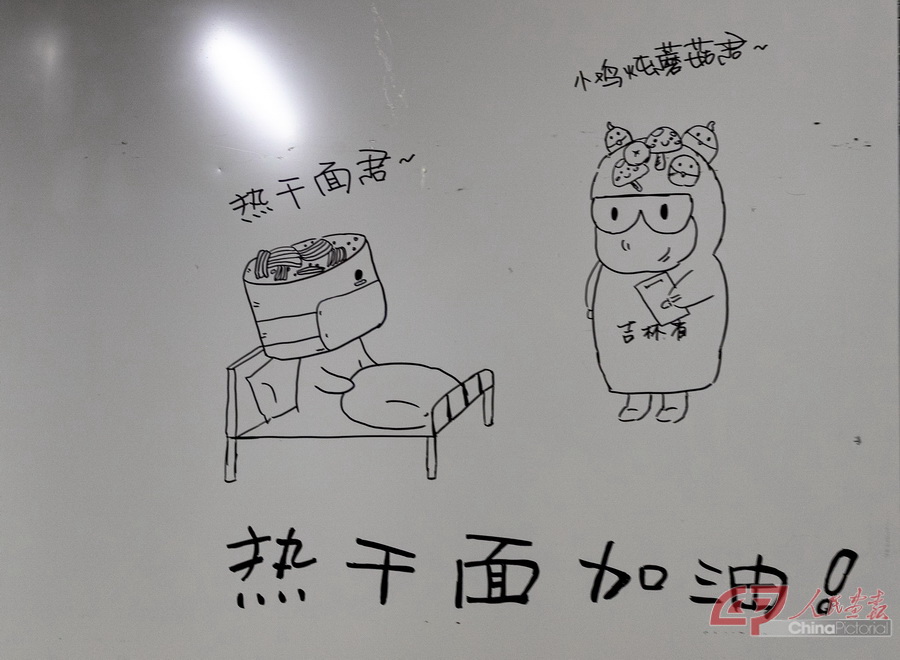 小鸡炖蘑菇君~
热干面君~
吉林省
热干面加油！
人民画报
ChinaPictorial